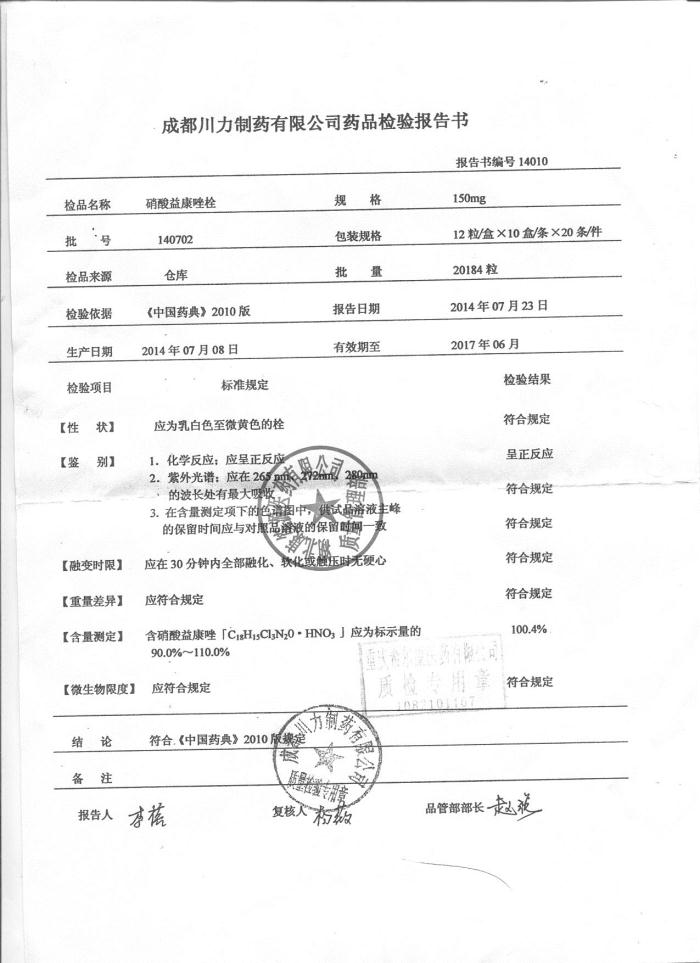 成都川力制药有限公司药品检验报告书
报告书编号 14010
检品名称 硝酸益康唑栓 规 格 150mg
批 号 140702 包装规格 12 粒/盒×10 盒/条×20 条/件
检品来源 仓库 批 量 20184 粒
检验依据 《中国药典》2010 版 报告日期 2014 年 07 月 23 日
生产日期 2014 年 07 月 08 日 有效期至 2017 年 06 月
检验项目 标准规定 检验结果
【性 状】 应为乳白色至微黄色的栓 符合规定
【鉴 别】 1. 化学反应：应呈正反应 呈正反应
2. 紫外光谱：应在 265 nm、272nm、280nm
的波长处有最大吸收 符合规定
3. 在含量测定项下的色谱图中，供试品溶液主峰
的保留时间应与对照品溶液的保留时间一致 符合规定
【融变时限】 应在 30 分钟内全部融化、软化或触压时无硬心 符合规定
【重量差异】 应符合规定 符合规定
【含量测定】 含硝酸益康唑「C₁₈H₁₅Cl₃N₂0·HNO₃」应为标示量的 100.4%
90.0%～110.0%
【微生物限度】 应符合规定 符合规定
质检专用章
结 论 符合《中国药典》2010 版规定
成都川力制药有限公司
备 注
报告人 复核人 品管部部长